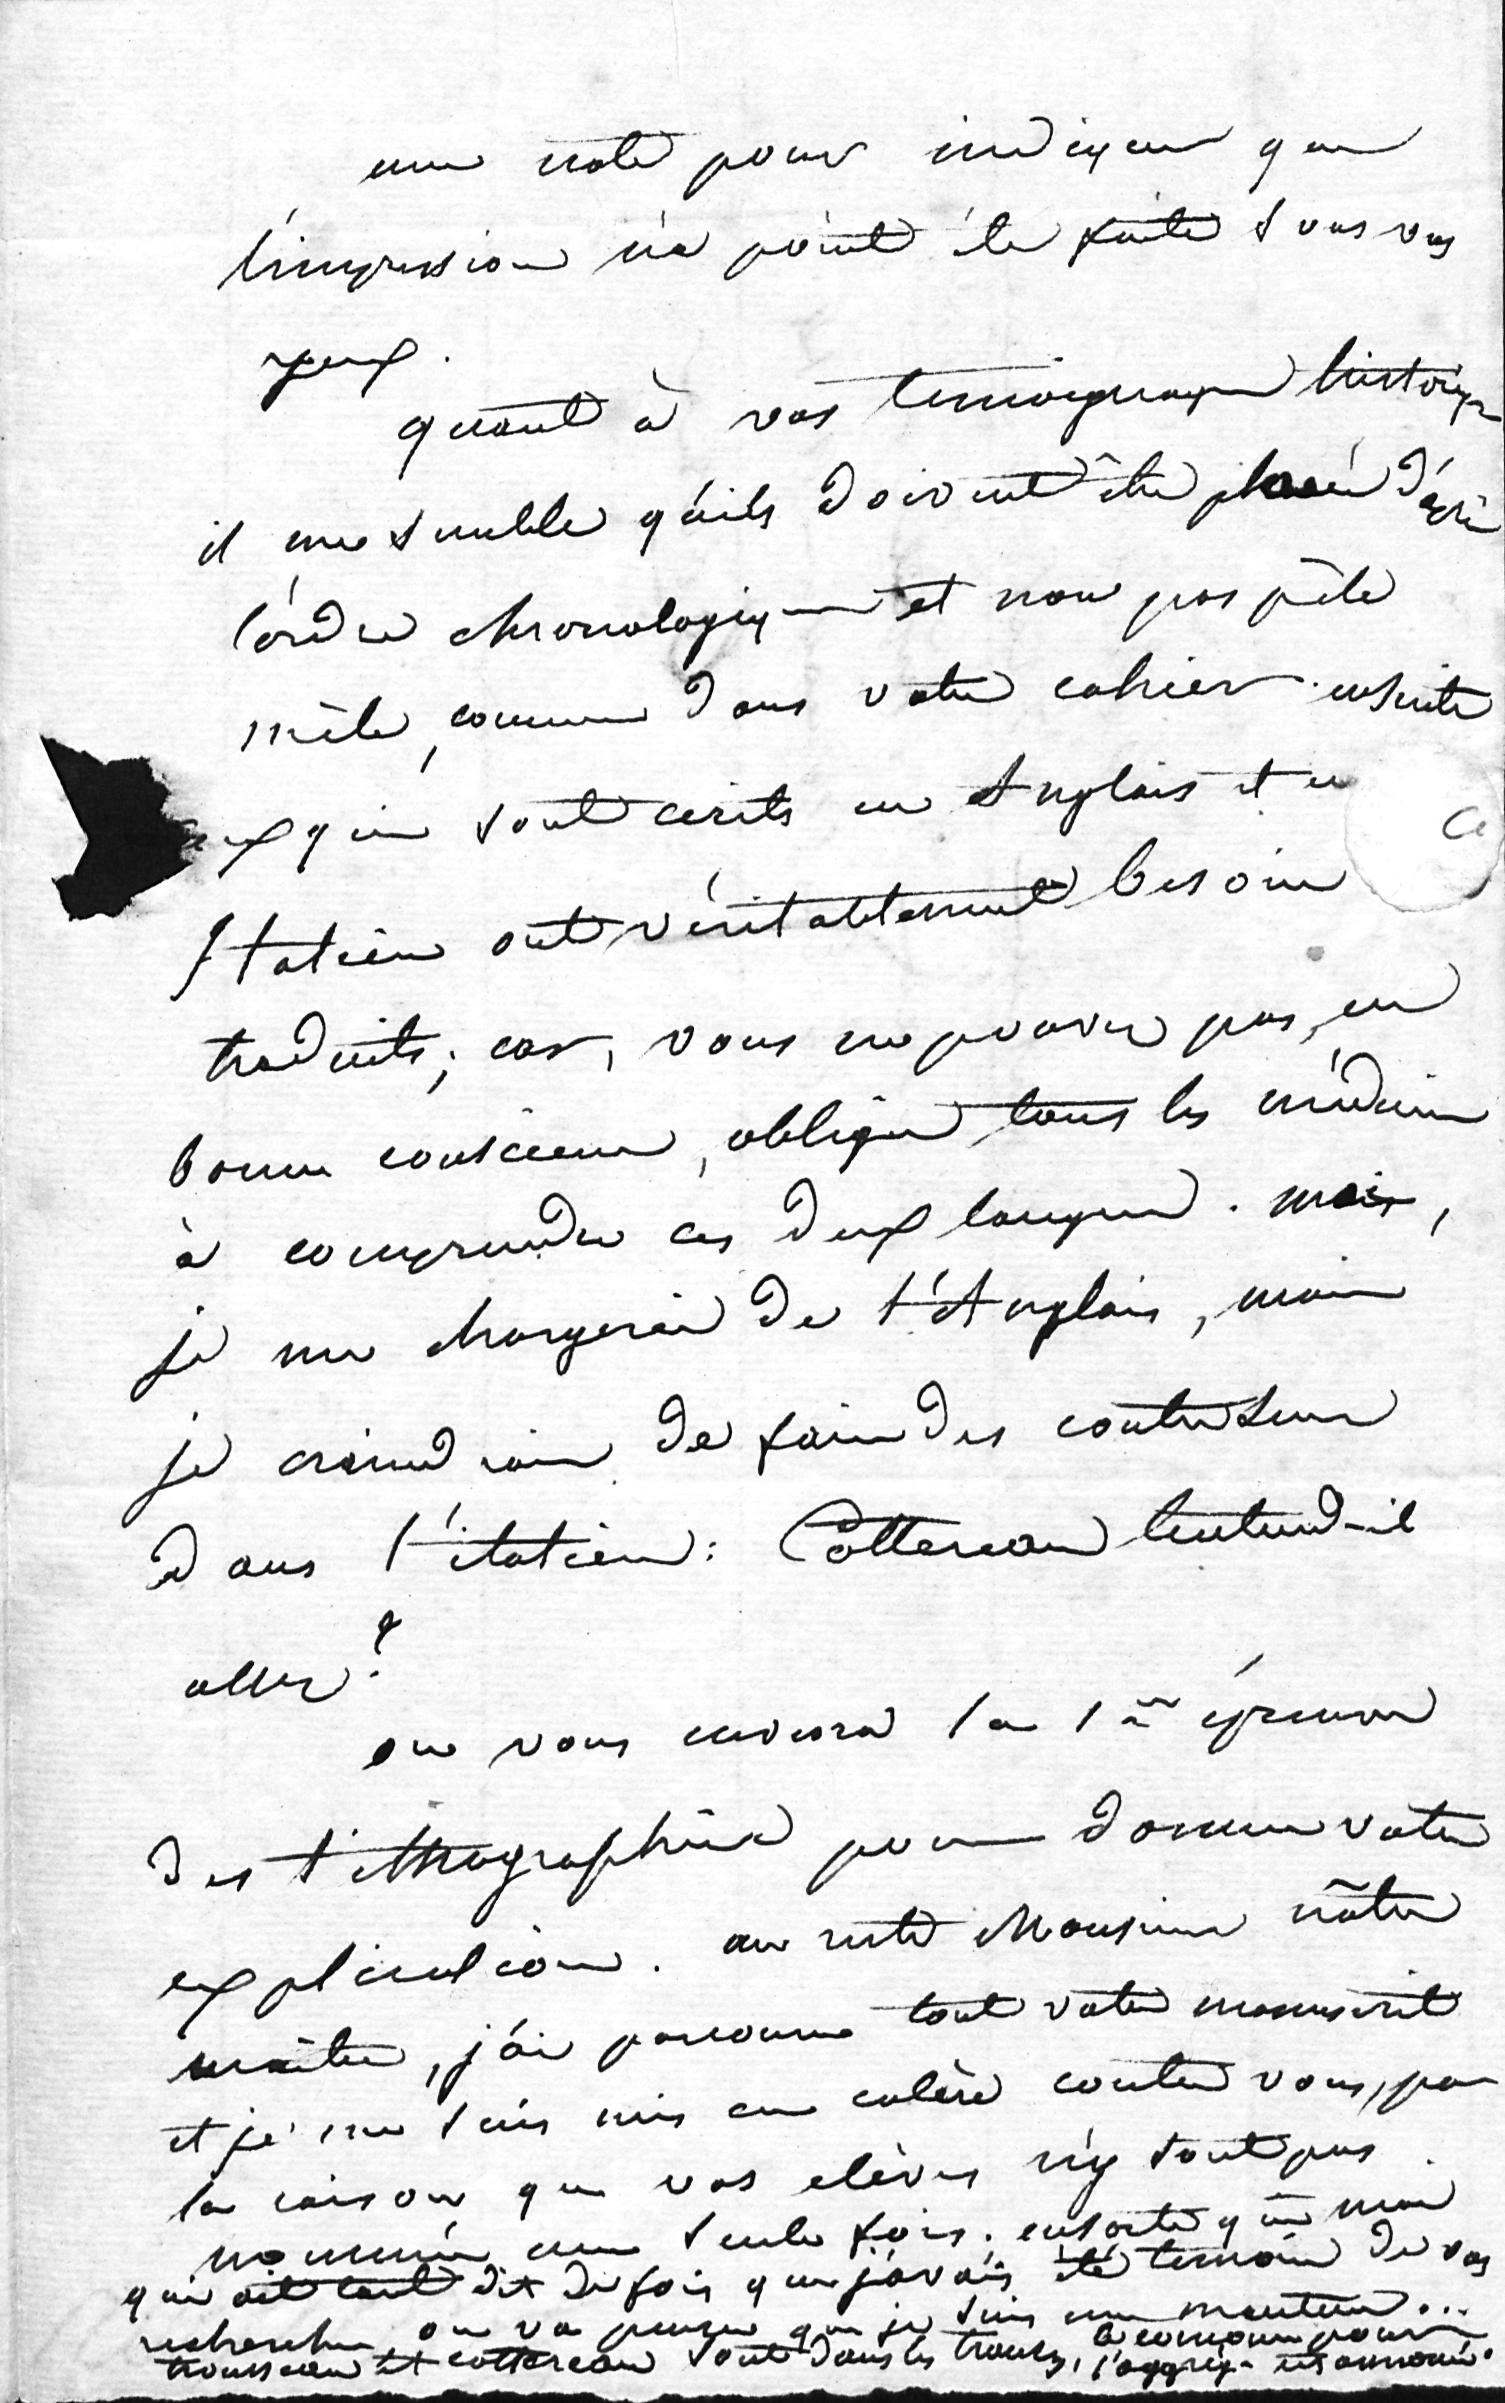 une note pour indiquer que
l'impression n'a point été faite sous vos
yeux.
quant à vos temoignages historiq
il me semble qu'ils doivent être placés d'après
l'ordre chronologique et non pas pêle
mêle, comme dans votre cahier. ensuite
ceux qui sont ecrits en Anglais et en
Italien ont véritablement besoin
traduits; car, vous ne pouvez pas, en
bonne conscience, obliger tous les médecins
à comprendre ces deux langues. mais,
je me chargerai de l'Anglais, mais
je craindrais de faire des contresens
dans l'italien: Cottereau l'entend-il
assez?
on vous enverra la 1ère épreuve
des lithographies pour donner votre
explication. au reste Monsieur nôtre
maître, j'ai parcouru tout votre manuscrit
et je me suis mis en colère contre vous, par
la raison que vos elèves n'y sont pas
nommés une seule fois. ensorte que moi
qui ait tant dit de fois que j'avais été temoin de vos
recherches on va penser que je suis un menteur...
trousseau et cottereau sont dans les transes, le concours pour
l'aggrég. est annoncé.